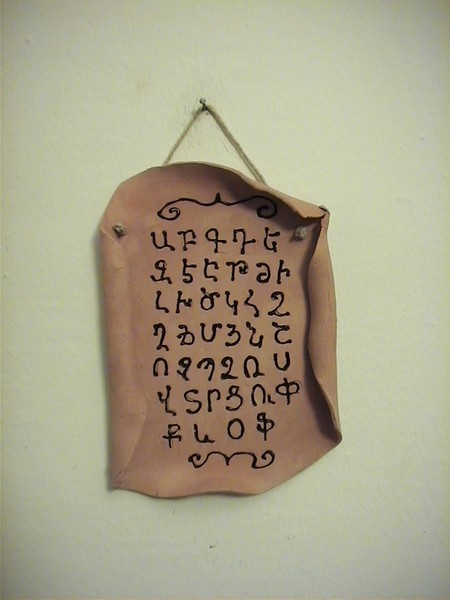 Ա Բ Գ Դ Ե
Զ Է Ը Թ Ժ Ի
Լ Խ Ծ Կ Հ Ձ
Ղ Ճ Մ Յ Ն Շ
Ո Չ Պ Ջ Ռ Ս
Վ Տ Ր Ց Ու Փ
Ք և Օ Ֆ